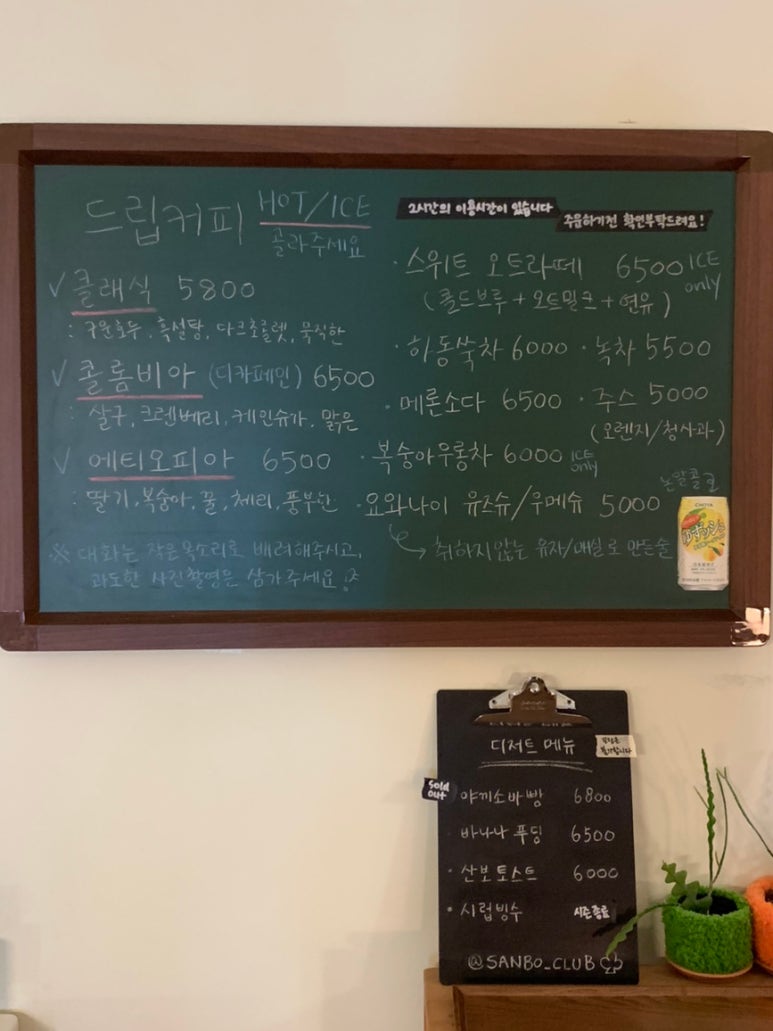 드립커피 HOT/ICE
골라주세요
✓ 클래식 5800
: 구운호두, 흑설탕, 다크초콜렛, 묵직한
✓ 콜롬비아 (디카페인) 6500
: 살구, 크렌베리, 케인슈가, 맑은
✓ 에티오피아 6500
: 딸기, 복숭아, 꿀, 체리, 풍부한
※ 대화는 작은 목소리로 배려해주시고,
과도한 사진촬영은 삼가주세요
2시간의 이용시간이 있습니다
주문하기전 확인부탁드려요!
· 스위트 오트라떼 6500 ICE only
(콜드브루 + 오트밀크 + 연유)
· 하동쑥차 6000 · 녹차 5500
· 메론소다 6500 · 주스 5000
(오렌지/청사과)
· 복숭아우롱차 6000 ICE only
· 요와나이 유즈슈/우메슈 5000 논알콜
→ 취하지않는 유자/매실로 만든술
CHOYA
ゆずッシュ
디저트 메뉴
Sold out
야끼소바빵 6800
· 바나나 푸딩 6500
· 산보토스트 6000
· 시럽빙수 시즌종료
@SANBO_CLUB